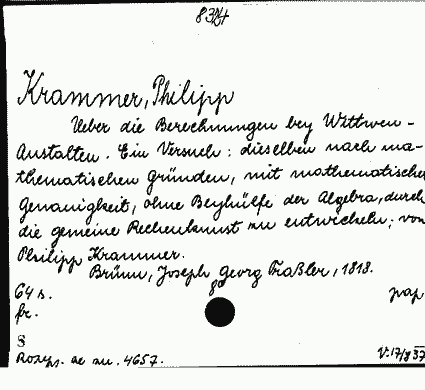 Krammer, Philipp
Ueber die Berechnungen bey Wittwen-
Anstalten. Ein Versuch: dieselben nach ma-
thematischen Gründen, mit mathematischer
Genauigkeit, ohne Beyhülfe der Algebra, durch
die gemeine Rechenkunst zu entwickeln; von
Philipp Krammer.
Brünn, Joseph Georg Traßler, 1818.
64 s. 8° pap
fr.
8
4657.